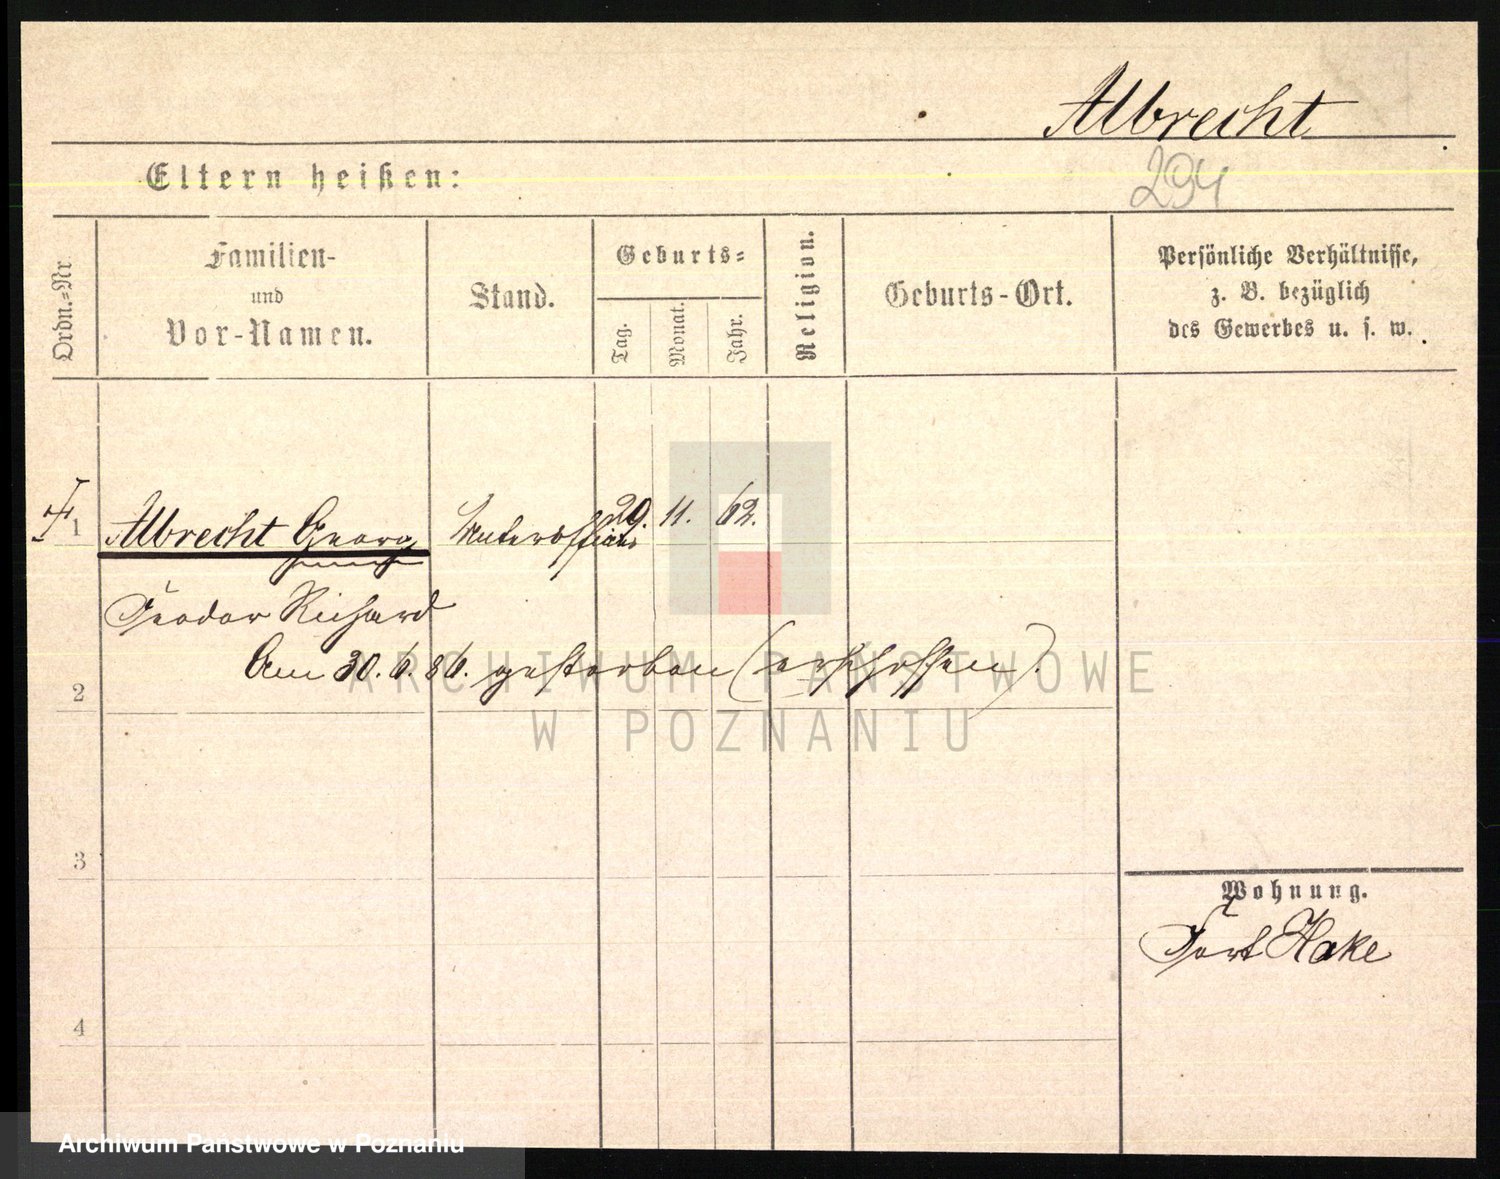 Albrecht
294
Eltern heißen:
Ordn.=Nr.
Familien-
und
Vor-Namen.
Stand.
Geburts=
Tag.
Monat.
Jahr.
Religion.
Geburts-Ort.
Persönliche Verhältnisse,
z. B. bezüglich
des Gewerbes u. s. w.
1 Albrecht Georg Unteroffizier 29. 11. 62.
Teodor Richard
Am 30. 6. 86. gestorben (erschossen).
2
3
4
Wohnung.
Fort Hake
ARCHIWUM PAŃSTWOWE
W POZNANIU
Archiwum Państwowe w Poznaniu